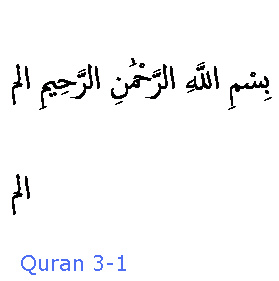 بِسْمِ اللَّهِ الرَّحْمَٰنِ الرَّحِيمِ الم
الم
Quran 3-1